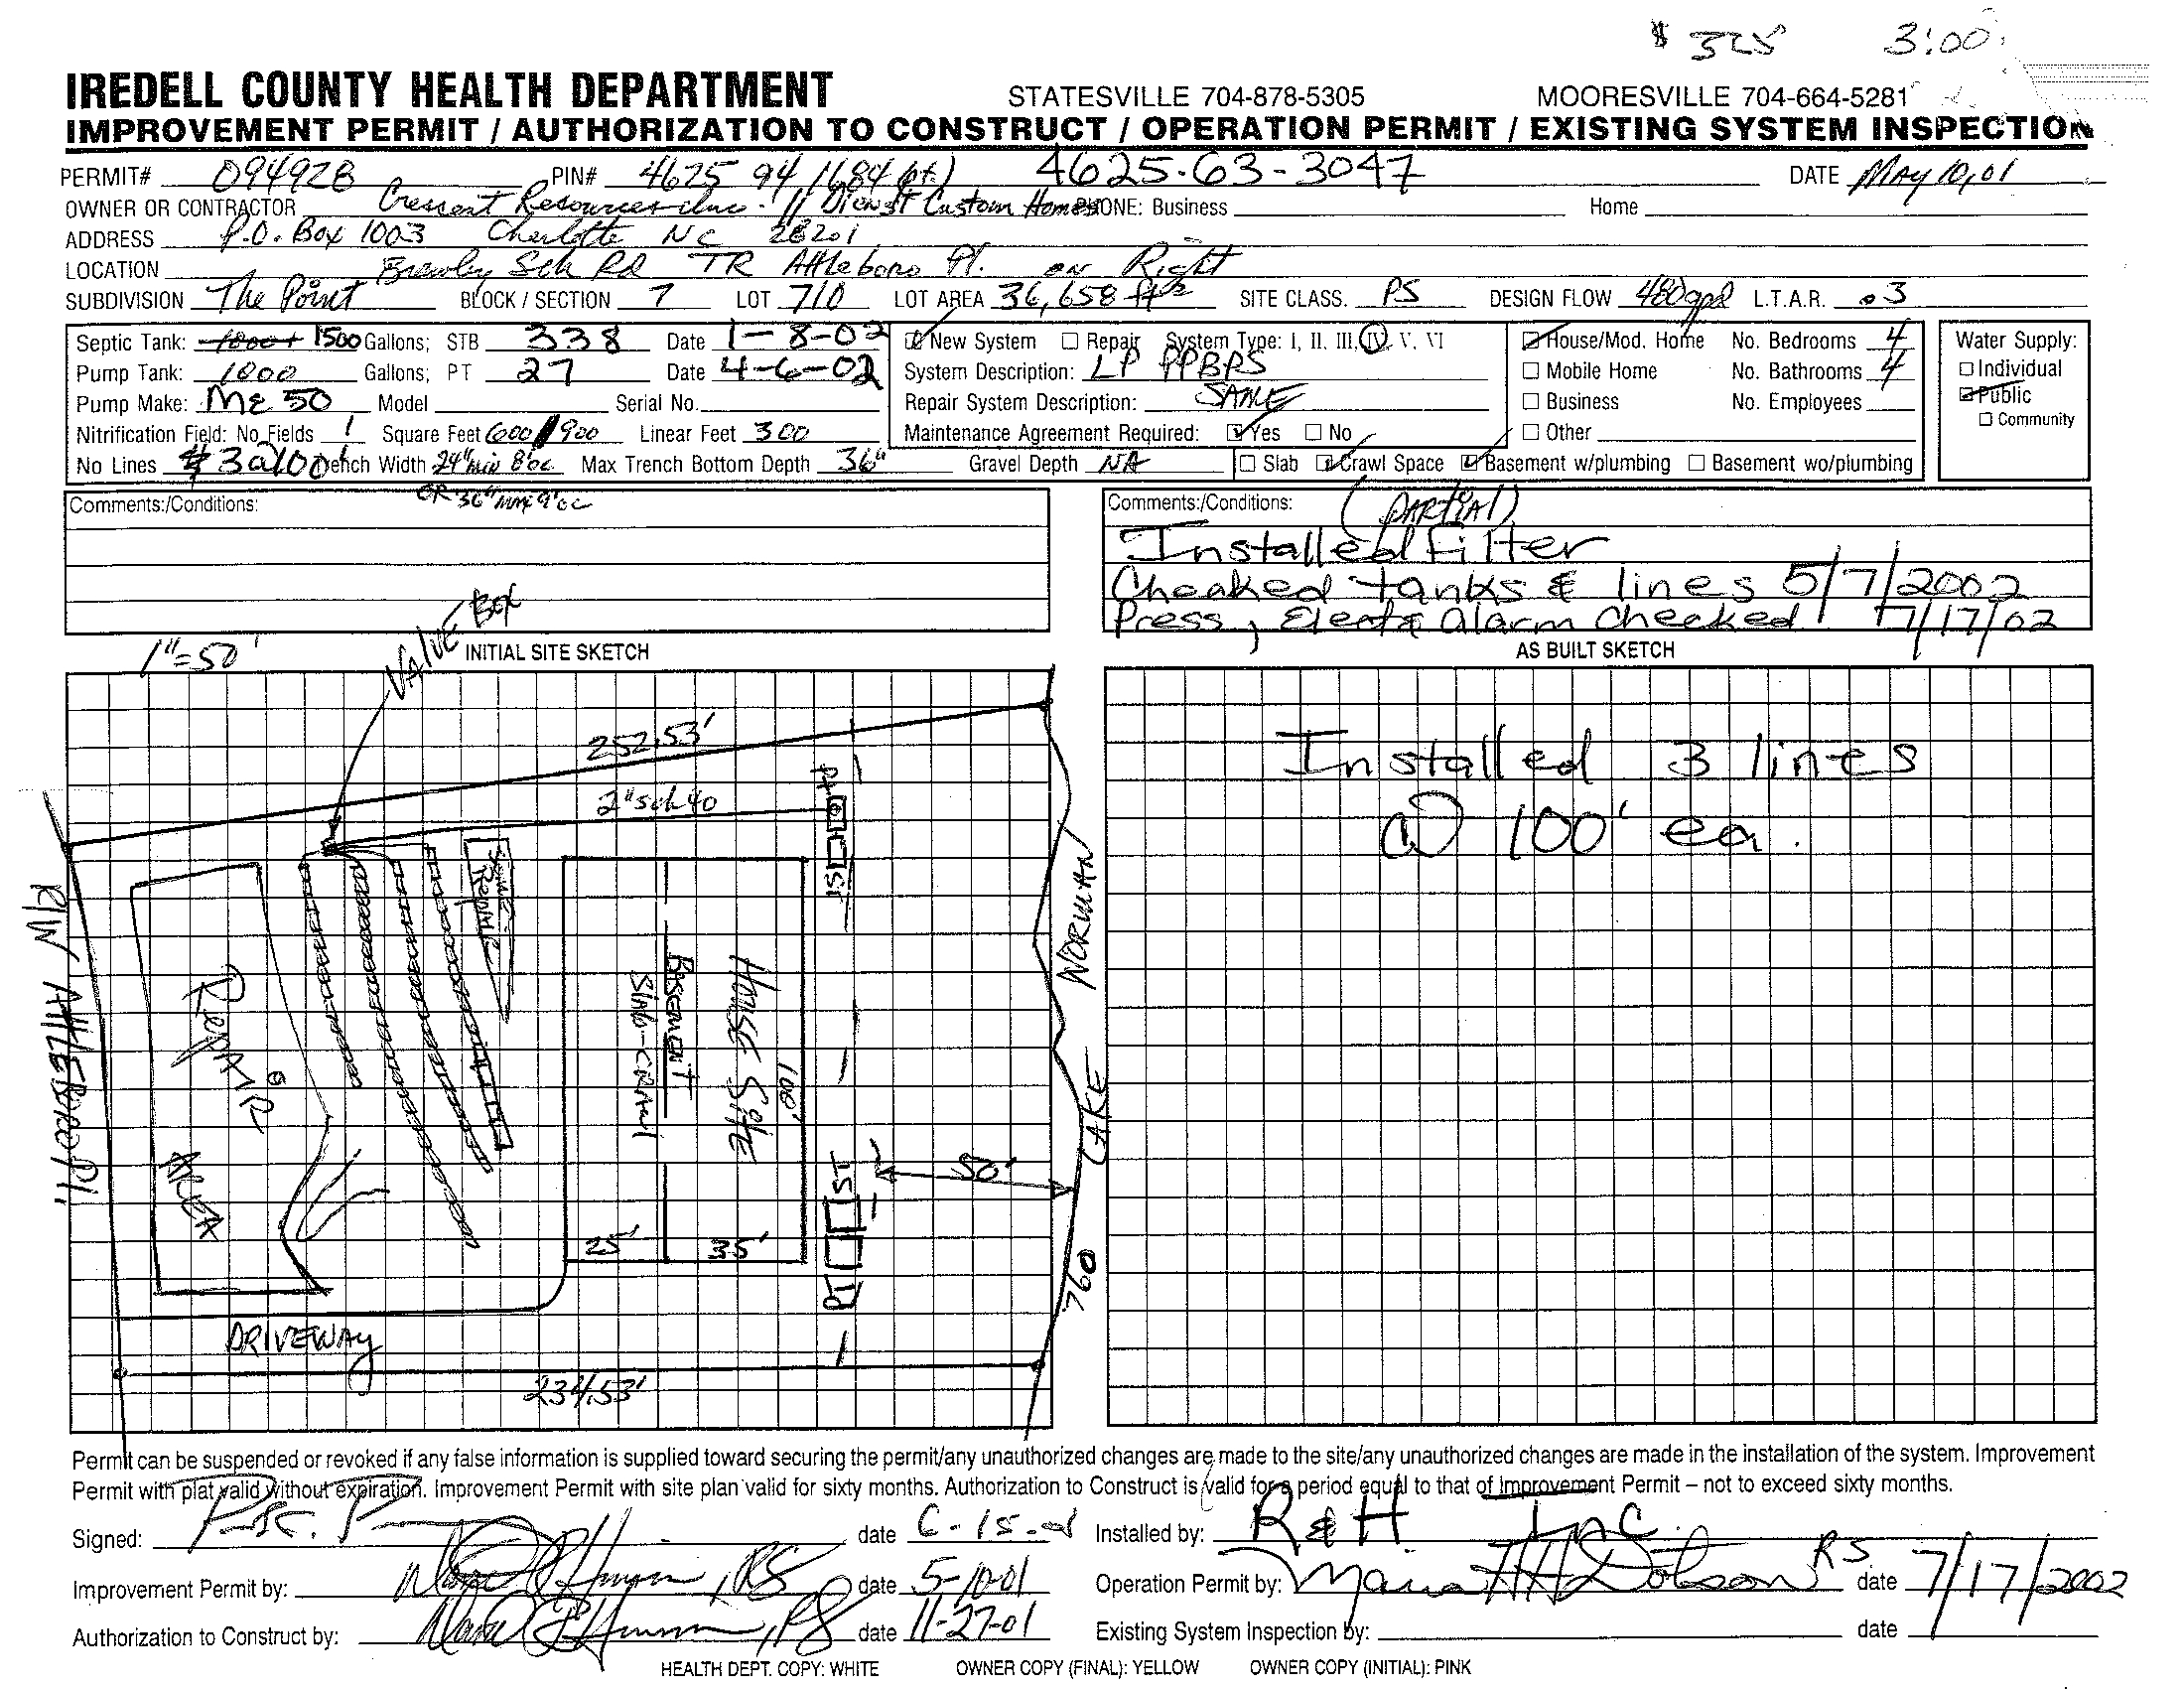 $ 325 3:00
IREDELL COUNTY HEALTH DEPARTMENT STATESVILLE 704-878-5305 MOORESVILLE 704-664-5281
IMPROVEMENT PERMIT / AUTHORIZATION TO CONSTRUCT / OPERATION PERMIT / EXISTING SYSTEM INSPECTION
PERMIT# 094928 PIN# 4625 94 1684 (pt.) 4625-63-3047 DATE May 10, 01
OWNER OR CONTRACTOR Crescent Resources Inc. // Dienst Custom Homes PHONE: Business Home
ADDRESS P.O. Box 1003 Charlotte NC 28201
LOCATION Brawley Sch Rd TR Attleboro Pl. on Right
SUBDIVISION The Point BLOCK / SECTION 7 LOT 710 LOT AREA 36,658 ft² SITE CLASS. PS DESIGN FLOW 480gpd L.T.A.R. .3
Septic Tank: 1000+ 1500 Gallons; STB 338 Date 1-8-02 New System Repair System Type: I, II, III, IV, V, VI House/Mod. Home No. Bedrooms 4 Water Supply:
Pump Tank: 1000 Gallons; PT 27 Date 4-6-02 System Description: LP PPBPS Mobile Home No. Bathrooms 4 Individual
Pump Make: ME 50 Model Serial No. Repair System Description: SAME Business No. Employees Public
Nitrification Field: No Fields 1 Square Feet 600 / 900 Linear Feet 300 Maintenance Agreement Required: Yes No Other Community
No Lines 3@100 Trench Width 24" min 8'oc Max Trench Bottom Depth 36" Gravel Depth NA Slab Crawl Space Basement w/plumbing Basement wo/plumbing
OR 36" 9'oc
Comments:/Conditions:
Comments:/Conditions: (PARTIAL)
Installed Filter
Cheaked tanks & lines 5/7/2002
Press, Elect & alarm Checked 7/17/02
1"=50' INITIAL SITE SKETCH
VALVE BOX
AS BUILT SKETCH
252.53'
2" sch 40
PT
ST
Installed 3 lines
@ 100' ea.
R/W Attleboro Pl.
REPAIR
AREA
REPAIR
BASEMENT
Slab-CRAWL
HOUSE SITE
100'
25'
35'
ST
PT
50'
LAKE NORMAN
760
DRIVEWAY
234.53'
Permit can be suspended or revoked if any false information is supplied toward securing the permit/any unauthorized changes are made to the site/any unauthorized changes are made in the installation of the system. Improvement
Permit with plat valid without expiration. Improvement Permit with site plan valid for sixty months. Authorization to Construct is valid for a period equal to that of Improvement Permit – not to exceed sixty months.
Signed: date 6-15-01 Installed by: R & H Inc.
Improvement Permit by: , RS date 5-10-01 Operation Permit by: Dobson RS date 7/17/2002
Authorization to Construct by: , RS date 11-27-01 Existing System Inspection by: date
HEALTH DEPT. COPY: WHITE OWNER COPY (FINAL): YELLOW OWNER COPY (INITIAL): PINK